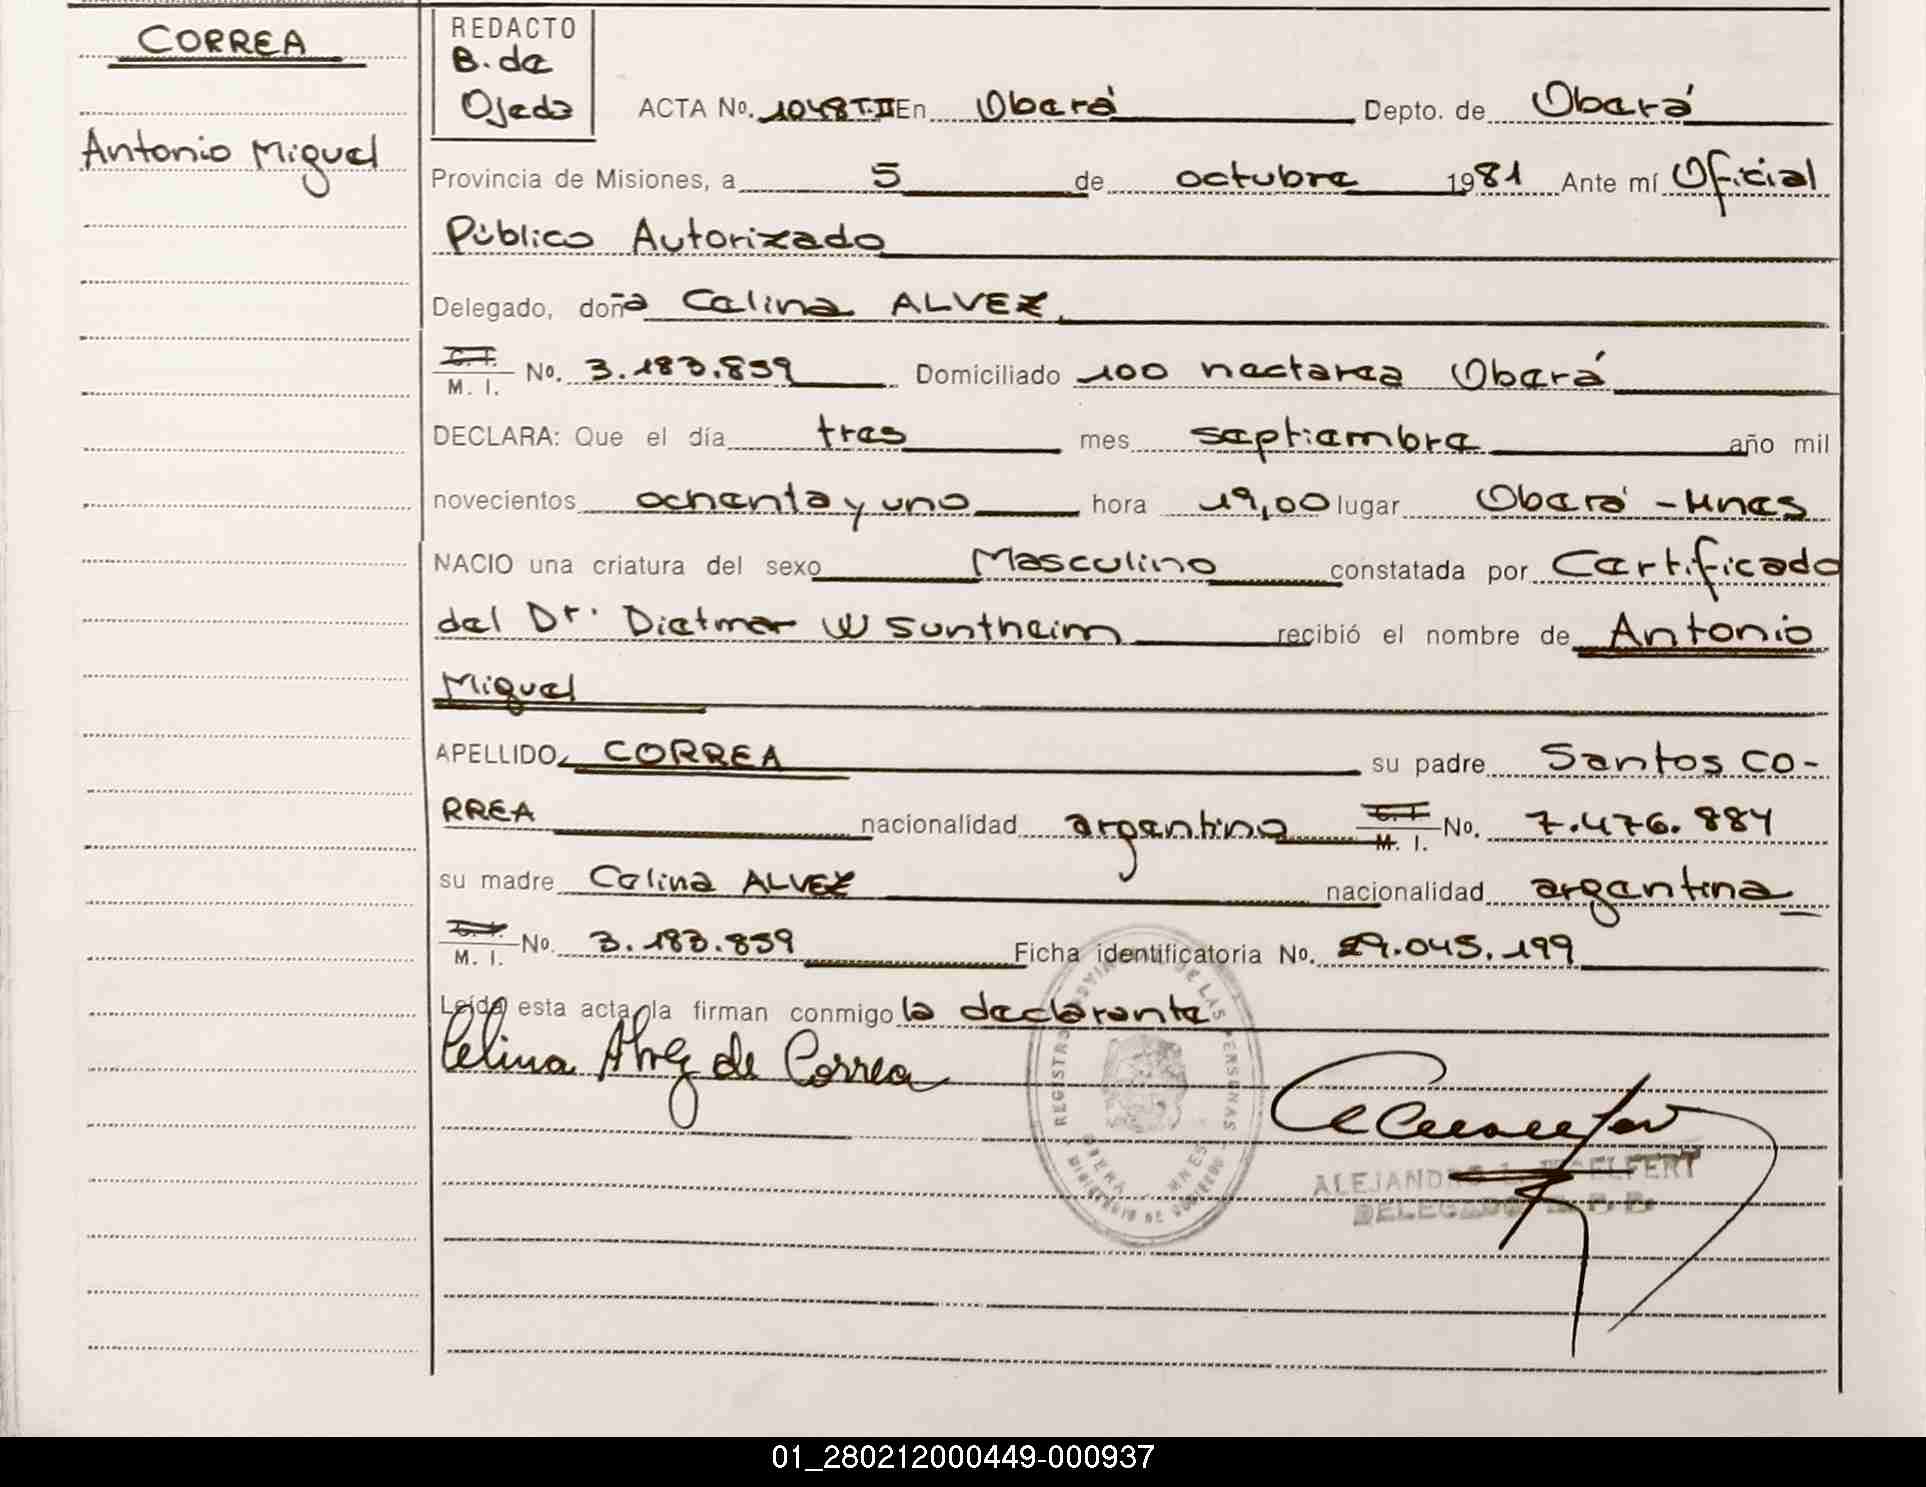 CORREA
Antonio Miguel
REDACTO
B. de
Ojeda
ACTA No. 1048 T.II En Oberá Depto. de Oberá
Provincia de Misiones, a 5 de octubre 1981 Ante mí Oficial
Público Autorizado
Delegado, doña Celina ALVEZ
C. I.
M. I. No. 3.183.859 Domiciliado 100 hectarea Oberá
DECLARA: Que el día tres mes septiembre año mil
novecientos ochenta y uno hora 19,00 lugar Oberá - Mnes
NACIO una criatura del sexo Masculino constatada por Certificado
del Dr. Dietmar W Suntheim recibió el nombre de Antonio
Miguel
APELLIDO CORREA su padre Santos CO-
RREA nacionalidad argentino C. I. M. I. No. 7.476.884
su madre Celina ALVEZ nacionalidad argentina
C. I.
M. I. No. 3.183.859 Ficha identificatoria No. 29.045.199
Leída esta acta, la firman conmigo la declarante
Celina Alvez de Correa
REGISTRO PROVINCIAL DE LAS PERSONAS
OBERA - MNES
MINISTERIO DE GOBIERNO
ALEJANDRO
DELEGADO R. P. P.
01_280212000449-000937